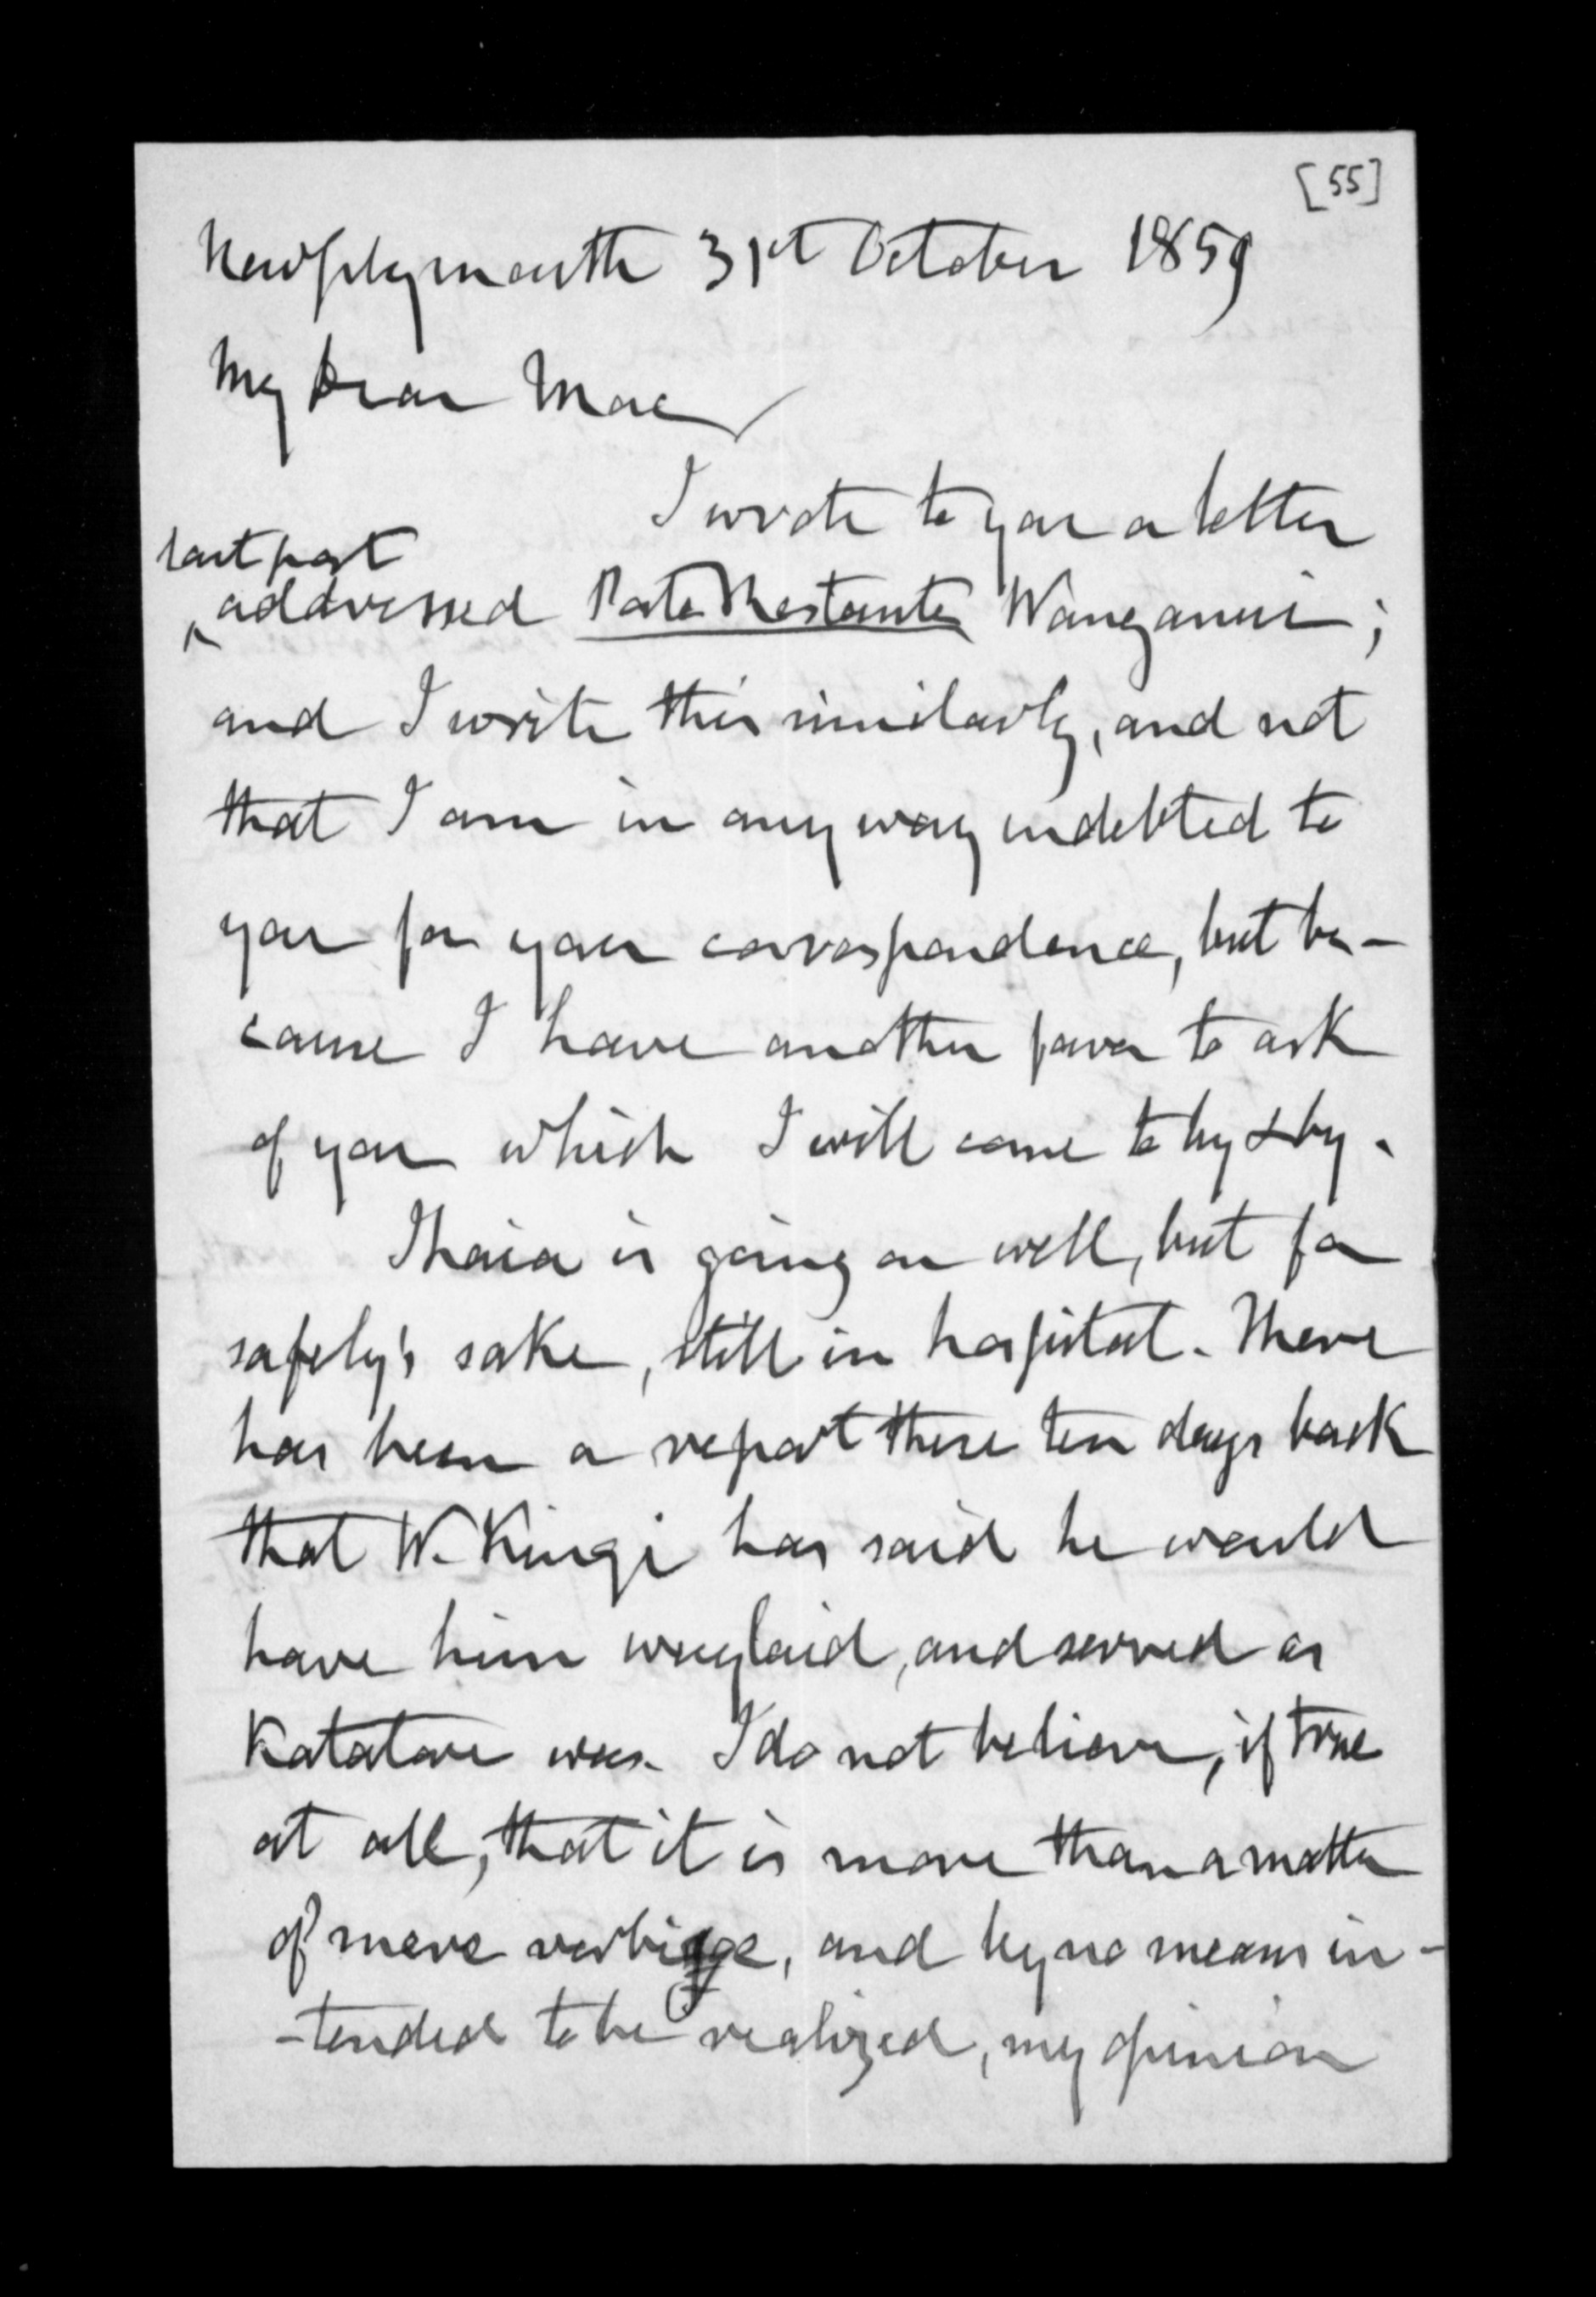 [55]
New Plymouth 31st October 1859
My Dear Mac
I wrote to you a letter
last post
addressed Poste Restante Wanganui;
and I write this similarly, and not
that I am in any way indebted to
you for your correspondence, but be-
cause I have another favor to ask
of you which I will come to by & by.
Ihaia is going on well, but for
safety's sake, still in hospital. There
has been a report these ten days back
that W. Kingi has said he would
have him waylaid, and served as
Katatore was. I do not believe, if true
at all, that it is more than a matter
of mere verbiage, and by no means in-
-tended to be realized, my opinion